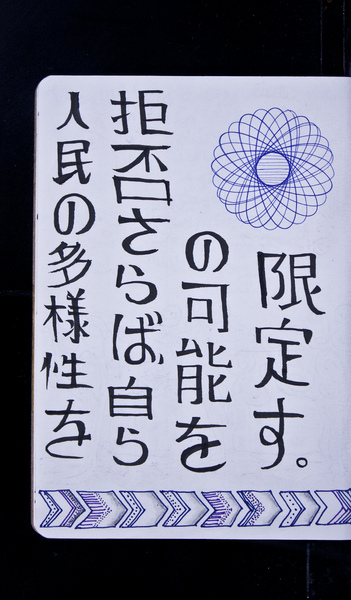 人民の多様性を
拒否さらば、自ら
の可能を
限定す。